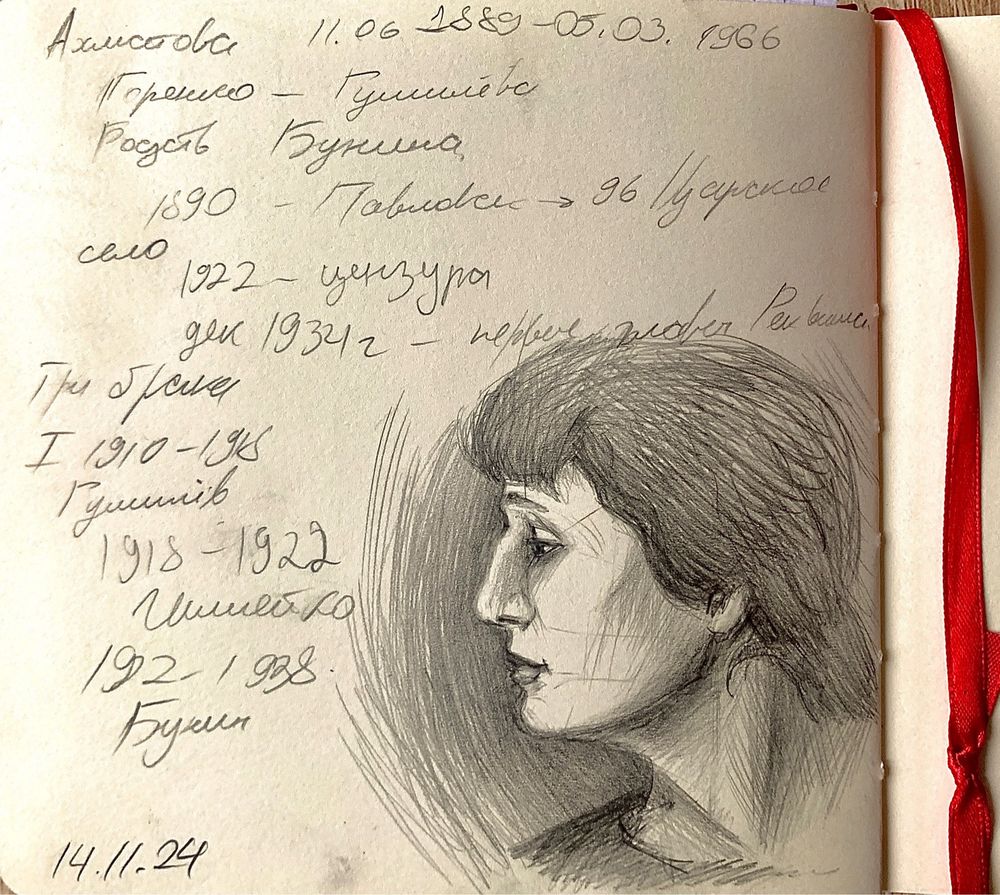 Ахматова 11.06 1889 – 05.03. 1966
Горенко – Гумилёва
Родств Бунина
1890 – Павловск → 96 Царское
село
1922 – цензуры
дек 1934г – первые Реквием
Три брака
I 1910–1918
Гумилёв
1918 – 1922
Шилейко
1922–1938.
Бунин
14.11.24